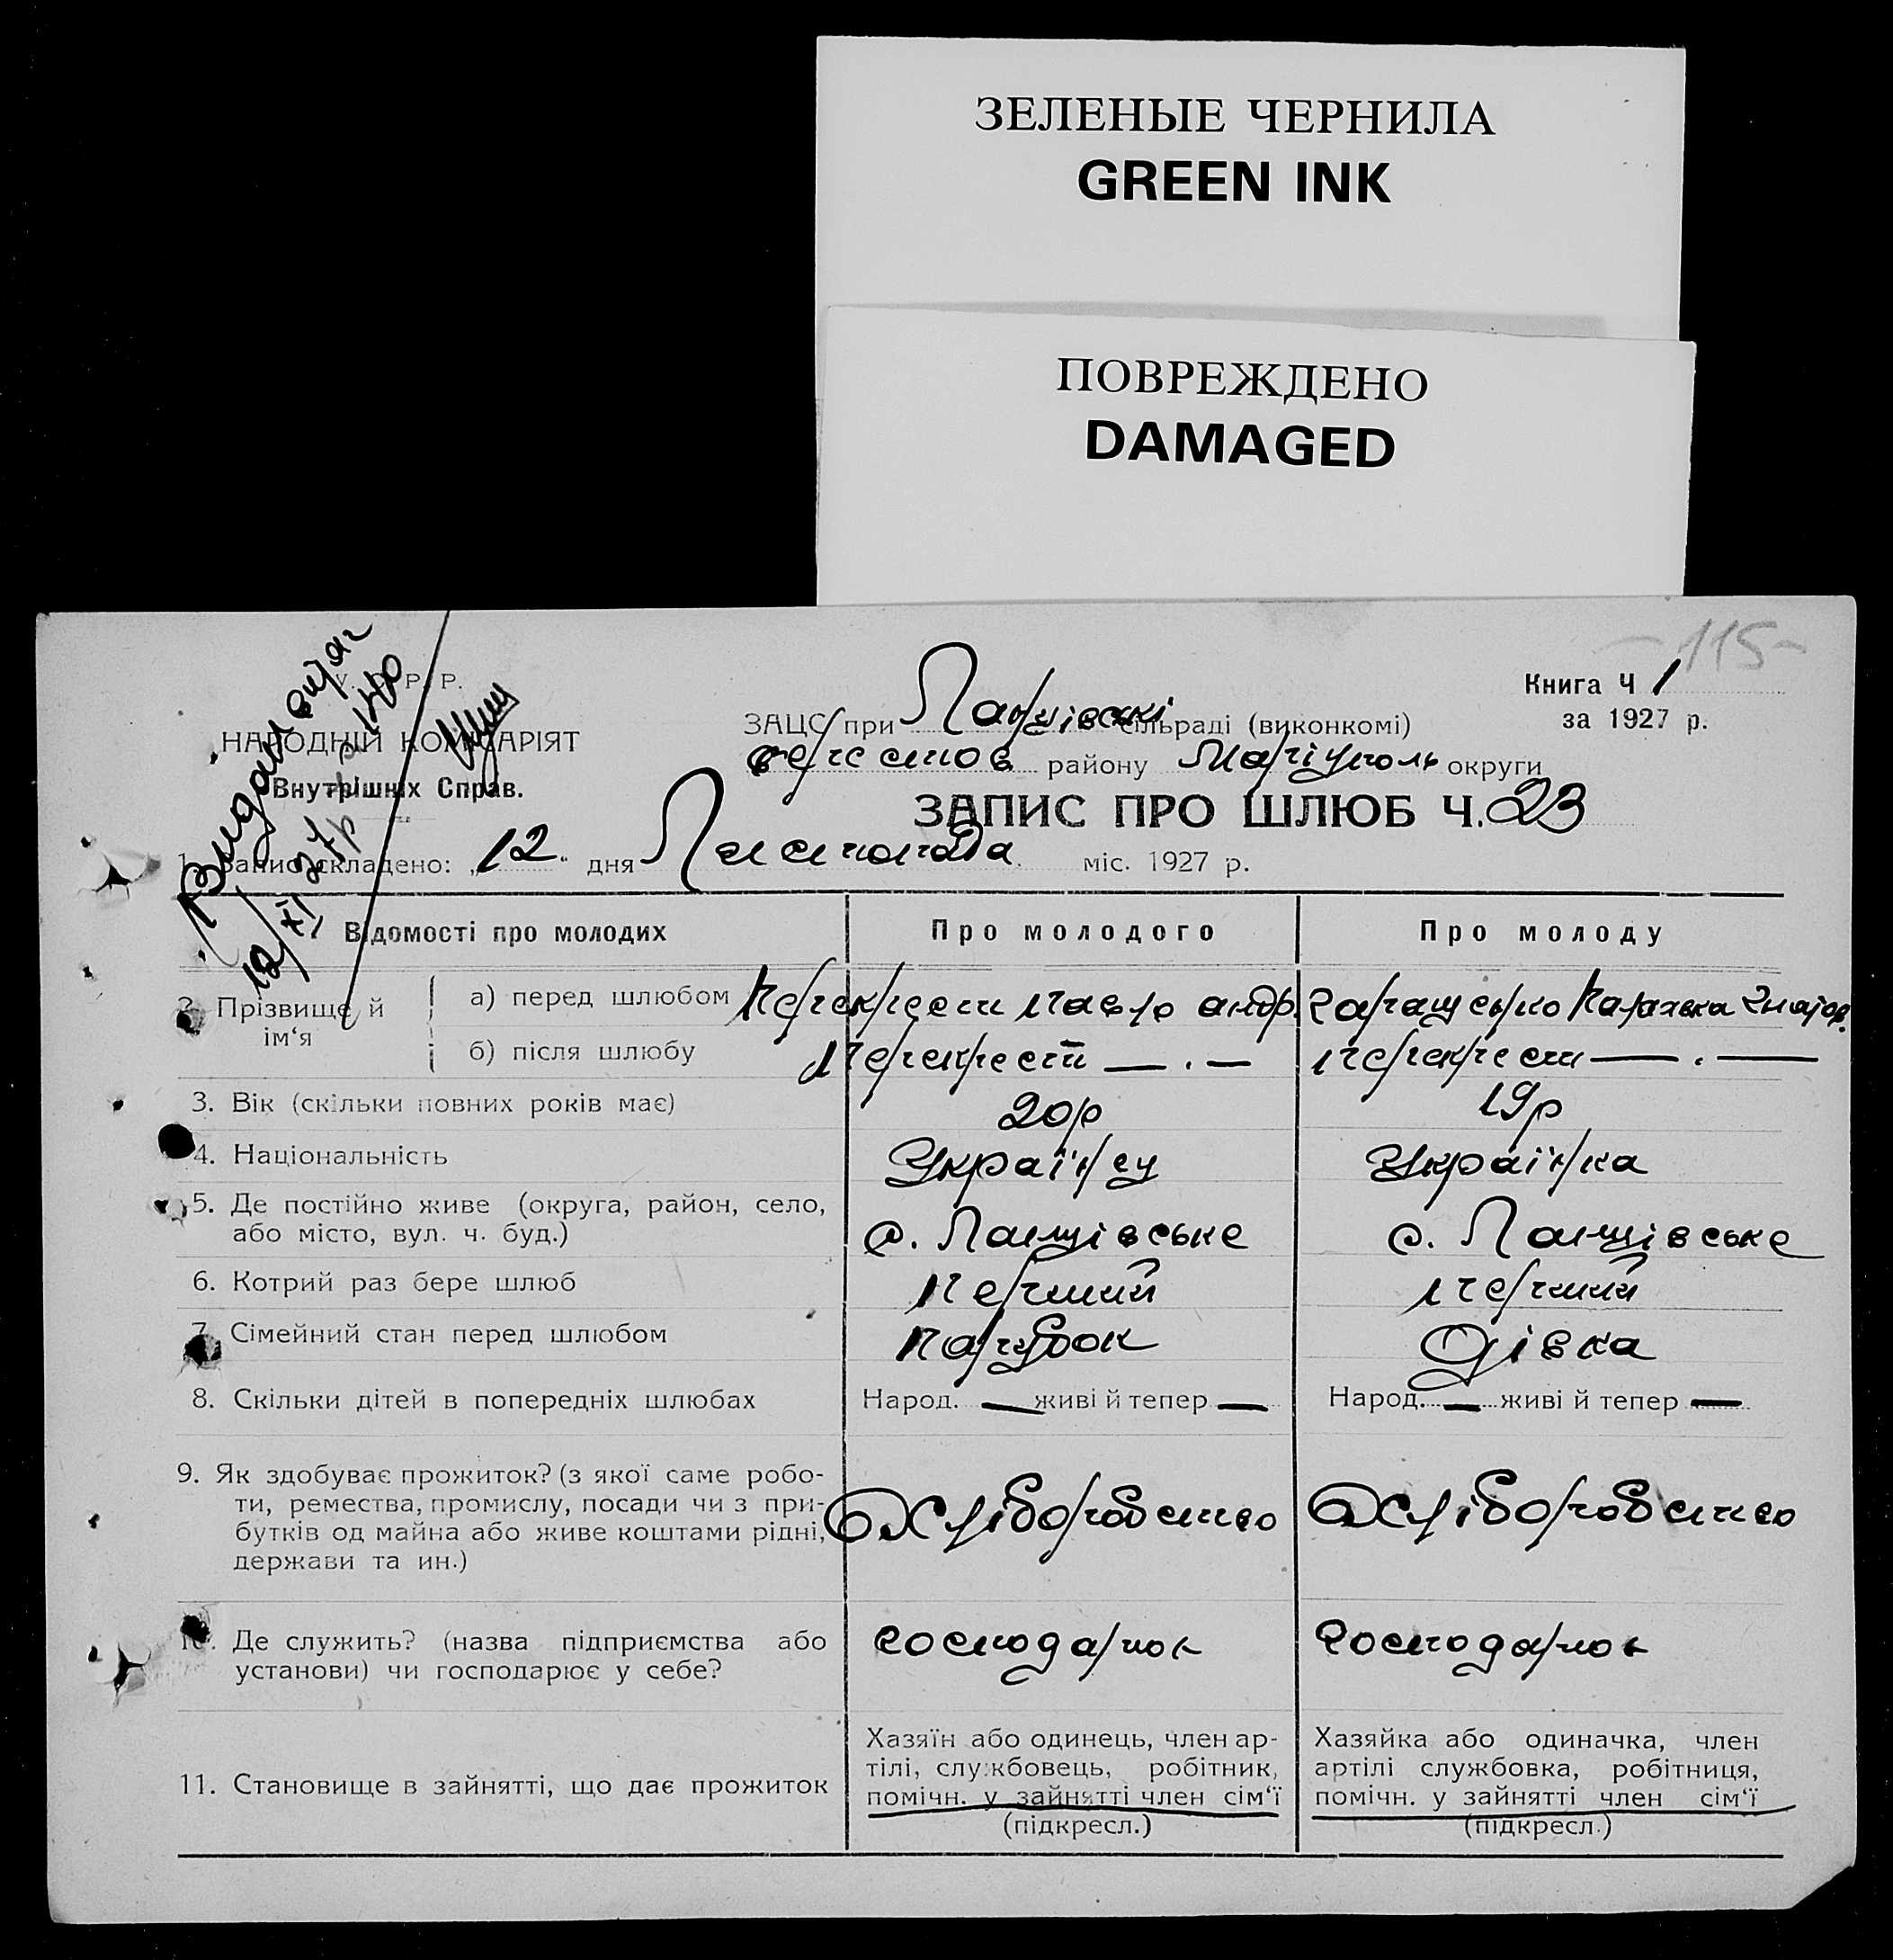 ЗЕЛЕНЫЕ ЧЕРНИЛА
GREEN INK
ПОВРЕЖДЕНО
DAMAGED
-115-
Книга Ч 1
за 1927 р.
Р. Р.
НАРОДНІЙ КОМІСАРІЯТ
Внутрішніх Справ.
Видан витяг
12/XI 27р
ЗАЦС при сільраді (виконкомі)
району Маріуполь округи
ЗАПИС ПРО ШЛЮБ Ч. 23
1. Запис складено: „12" дня Листопада міс. 1927 р.
Відомості про молодих
Про молодого
Про молоду
2. Прізвище й ім‘я
а) перед шлюбом Перекрест Павло Андр.
б) після шлюбу Перекрест — . — Перекрест — . —
3. Вік (скільки повних років має) 20р 19р
4. Національність Україн/ец Україн/ка
5. Де постійно живе (округа, район, село,
або місто, вул. ч. буд.) с. Лащівське с. Лащівське
6. Котрий раз бере шлюб перший перший
7. Сімейний стан перед шлюбом парубок Дівка
8. Скільки дітей в попередніх шлюбах Народ. — живі й тепер — Народ. — живі й тепер —
9. Як здобуває прожиток? (з якої саме робо-
ти, ремества, промислу, посади чи з при-
бутків од майна або живе коштами рідні,
держави та ин.)
Хліборобство Хліборобство
10. Де служить? (назва підприємства або
установи) чи господарює у себе?
господарюк господарюк
11. Становище в зайнятті, що дає прожиток
Хазяїн або одинець, член ар-
тілі, службовець, робітник,
помічн. у зайнятті член сім‘ї
(підкресл.)
Хазяйка або одиначка, член
артілі службовка, робітниця,
помічн. у зайнятті член сім‘ї
(підкресл.)